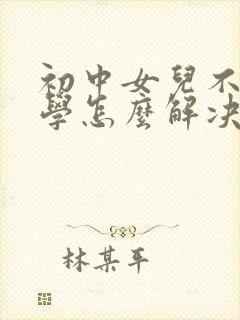 初中女兒不
學怎麼解決
林某平